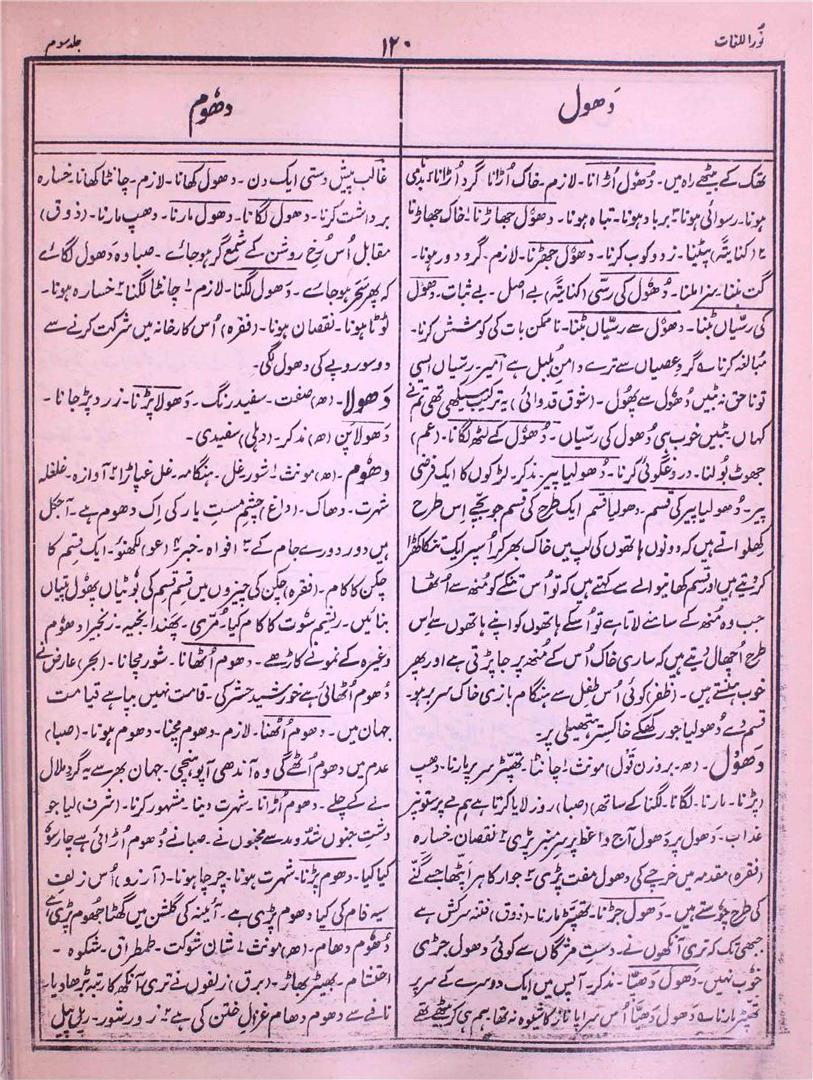 نُوراللغات
۱۲۰
جلد سوم
دَھول
تھک کے بیٹھے راہ میں۔ دُھول اُڑانا۔ لازم۔ خاک اُڑانا گرد اُڑانا
ہونا۔ رسوائی ہونا ۲ برباد ہونا۔ تباہ ہونا۔ دھول جھاڑنا ۱ خاک جھاڑنا
۲ (کنایتہً) پیٹینا۔ زدوکوب کرنا۔ دھول جھڑنا۔ لازم۔ گرد دور ہونا۔
گت بننا۔ سزا ملنا۔ دُھول کی رسّی (کنایتہً) بے اصل۔ بے ثبات۔ دھول
کی رسّیاں بٹنا۔ دھول سے رسّیاں بٹنا۔ ناممکن بات کی کوشش کرنا۔
مُبالغہ کرنا ؎ گردِ عصیاں سے ترے دامنِ بُلبل ہے امیر۔ رسّیاں ایسی
تو ناحق نہ بٹیں دُھول سے پھول۔ (شوق قدوائی) یہ ترکیب سیکھی تھی تم نے
کہاں بٹیں خوب ہی دُھول کی رسّیاں۔ دُھول کے لٹھ لگانا۔ (عم)
جھوٹ بولنا۔ دروغگوئی کرنا۔ دھولیا پیر۔ مذکر۔ لڑکوں کا ایک فرضی
پیر۔ دُھولیا پیر کی قسم۔ دھولیا قسم ایک طرح کی قسم جو بچّے اِس طرح
کھلواتے ہیں کہ دونوں ہاتھوں کی لپ میں خاک بھر کر اُسپر ایک تنکا کھڑا
کر دیتے ہیں اور قسم کھانیوالے سے کہتے ہیں کہ تو اُس تنکے کو مُنھ سے اُٹھا
جب وہ مُنھ کے سامنے لاتا ہے تو اُسکے ہاتھوں کو اپنے ہاتھوں سے اِس
طرح اُچھال دیتے ہیں کہ ساری خاک اُس کے مُنھ پر جا پڑتی ہے اور پھر
خوب ہنستے ہیں۔ (ظفر) کوئی اُس طفل سے ہنگام بازی خاک سربر ہو۔
قسم دے دُھولیا جو رکھکے خاکستر ہتھیلی پر۔
دَھول۔ (ھ۔ بروزن قول) مونث ۱ چانٹا۔ تھپّڑ سر پر مارنا۔ دھپ
(پڑنا۔ مارنا۔ لگانا۔ لگنا کے ساتھ) (صبا) روز لایا کرتا ہے ہم پر ستونِ
عذاب۔ دَھول پر دَھول آج واعظ پر سرِ منبر پڑی ۲ نقصان۔ خسارہ
(فقرہ) مقدمہ میں خرچے کی دھول مفت پڑی ۳ جوار کا ہرا پٹھا جسے گنّے
کی طرح چوستے ہیں۔ دھول جڑنا۔ تھپّڑ مارنا۔ (ذوق) فتنہ سرکش ہے
جبھی تک کہ تری آنکھوں نے۔ دستِ مژگاں سے کوئی دھول جڑی
خوب نہیں۔ دھول دَھپّا۔ مذکر۔ آپس میں ایک دوسرے کے سر پر
تھپّڑ مارنا ؎ دَھول دَھپّا اُس سراپا ناز کا شیوہ نہ تھا۔ ہم ہی کر بیٹھے تھے
دھوم
غالب پیش دستی ایک دن۔ دھول کھانا۔ لازم۔ چانٹا کھانا۔ خسارہ
برداشت کرنا۔ دھول لگانا۔ دھول مارنا۔ دھپ مارنا۔ (ذوق)
مقابل اُس رُخِ روشن کے شمع گر ہو جائے۔ صبا وہ دَھول لگائے
کہ پھر سَحَر ہو جائے۔ دَھول لگنا۔ لازم ۱ چانٹا لگنا ۲ خسارہ ہونا۔
ٹوٹا ہونا۔ نقصان ہونا۔ (فقرہ) اُس کارخانہ میں شرکت کرنے سے
دو سو روپے کی دھول لگی۔
دَھولا۔ (ھ) صفت۔ سفید رنگ۔ دَھولا پڑنا۔ زرد پڑ جانا۔
دَھولاپن (ھ) مذکر۔ (دہلی) سفیدی۔
دھوم۔ (ھ) مونث ۱ شور غل۔ ہنگامہ۔ غل غپاڑا ۲ آوازہ۔ غلغلہ
شہرت۔ دھاک۔ (داغ) چشم مستِ یار کی اِک دھوم ہے۔ آجکل
ہیں دور دورے جام کے ۳ افواہ۔ خبر ۴ (عو) لکھنؤ۔ ایک قسم کا
چکن کا کام۔ (فقرہ) چکن کی چیزوں میں قسم قسم کی بُوٹیاں پھول پتیاں
بنائیں۔ ریشم سُوت کا کام کیا۔ مُرّی۔ پھندا۔ بخیہ۔ زنجیرا۔ دھوم
وغیرہ کے نمونے کاڑھے۔ دھوم اُٹھانا۔ شور مچانا۔ (بحر) عارض نے
دُھوم اُٹھائی ہے خورشید حشر کی۔ قامت نہیں بپا ہے قیامت
جہان میں۔ دھوم اُٹھنا۔ لازم۔ دھوم مچنا۔ دھوم ہونا۔ (صبا)
عدم میں دھوم اُٹھے گی وہ آندھی آ پہنچی۔ جہان بھر سے یہ گردِ ملال
نے کے چلے۔ دھوم اُڑانا۔ شہرت دینا۔ مشہور کرنا۔ (شرف) لیا جو
دشتِ جنوں شد و مد سے مجنوں نے۔ صبا نے دُھوم اُڑائی ہے چار سو
کیا کیا۔ دھوم پڑنا۔ شہرت ہونا۔ چرچا ہونا۔ (آرزو) اُس زلفِ
سیہ فام کی کیا دھوم پڑی ہے۔ آئینہ کی گلشن میں گھٹا جھوم پڑی ہے
دُھوم دھام۔ (ھ) مونث ۱ شان شوکت۔ طمطراق۔ شکوہ۔
احتشام۔ بھیڑ بھاڑ۔ (برق) زلفوں نے تری آنکھ کا رتبہ بڑھا دیا۔
نافے سے دھوم دھام غزالِ ختن کی ہے ۲ زور شور۔ ریل پیل